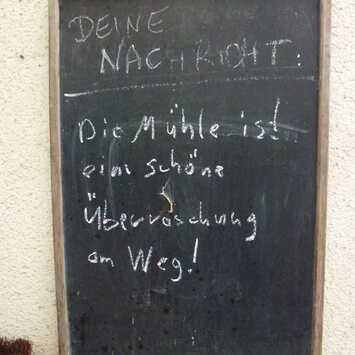 DEINE
NACHRICHT:
Die Mühle ist
eine schöne
Überraschung
am Weg!